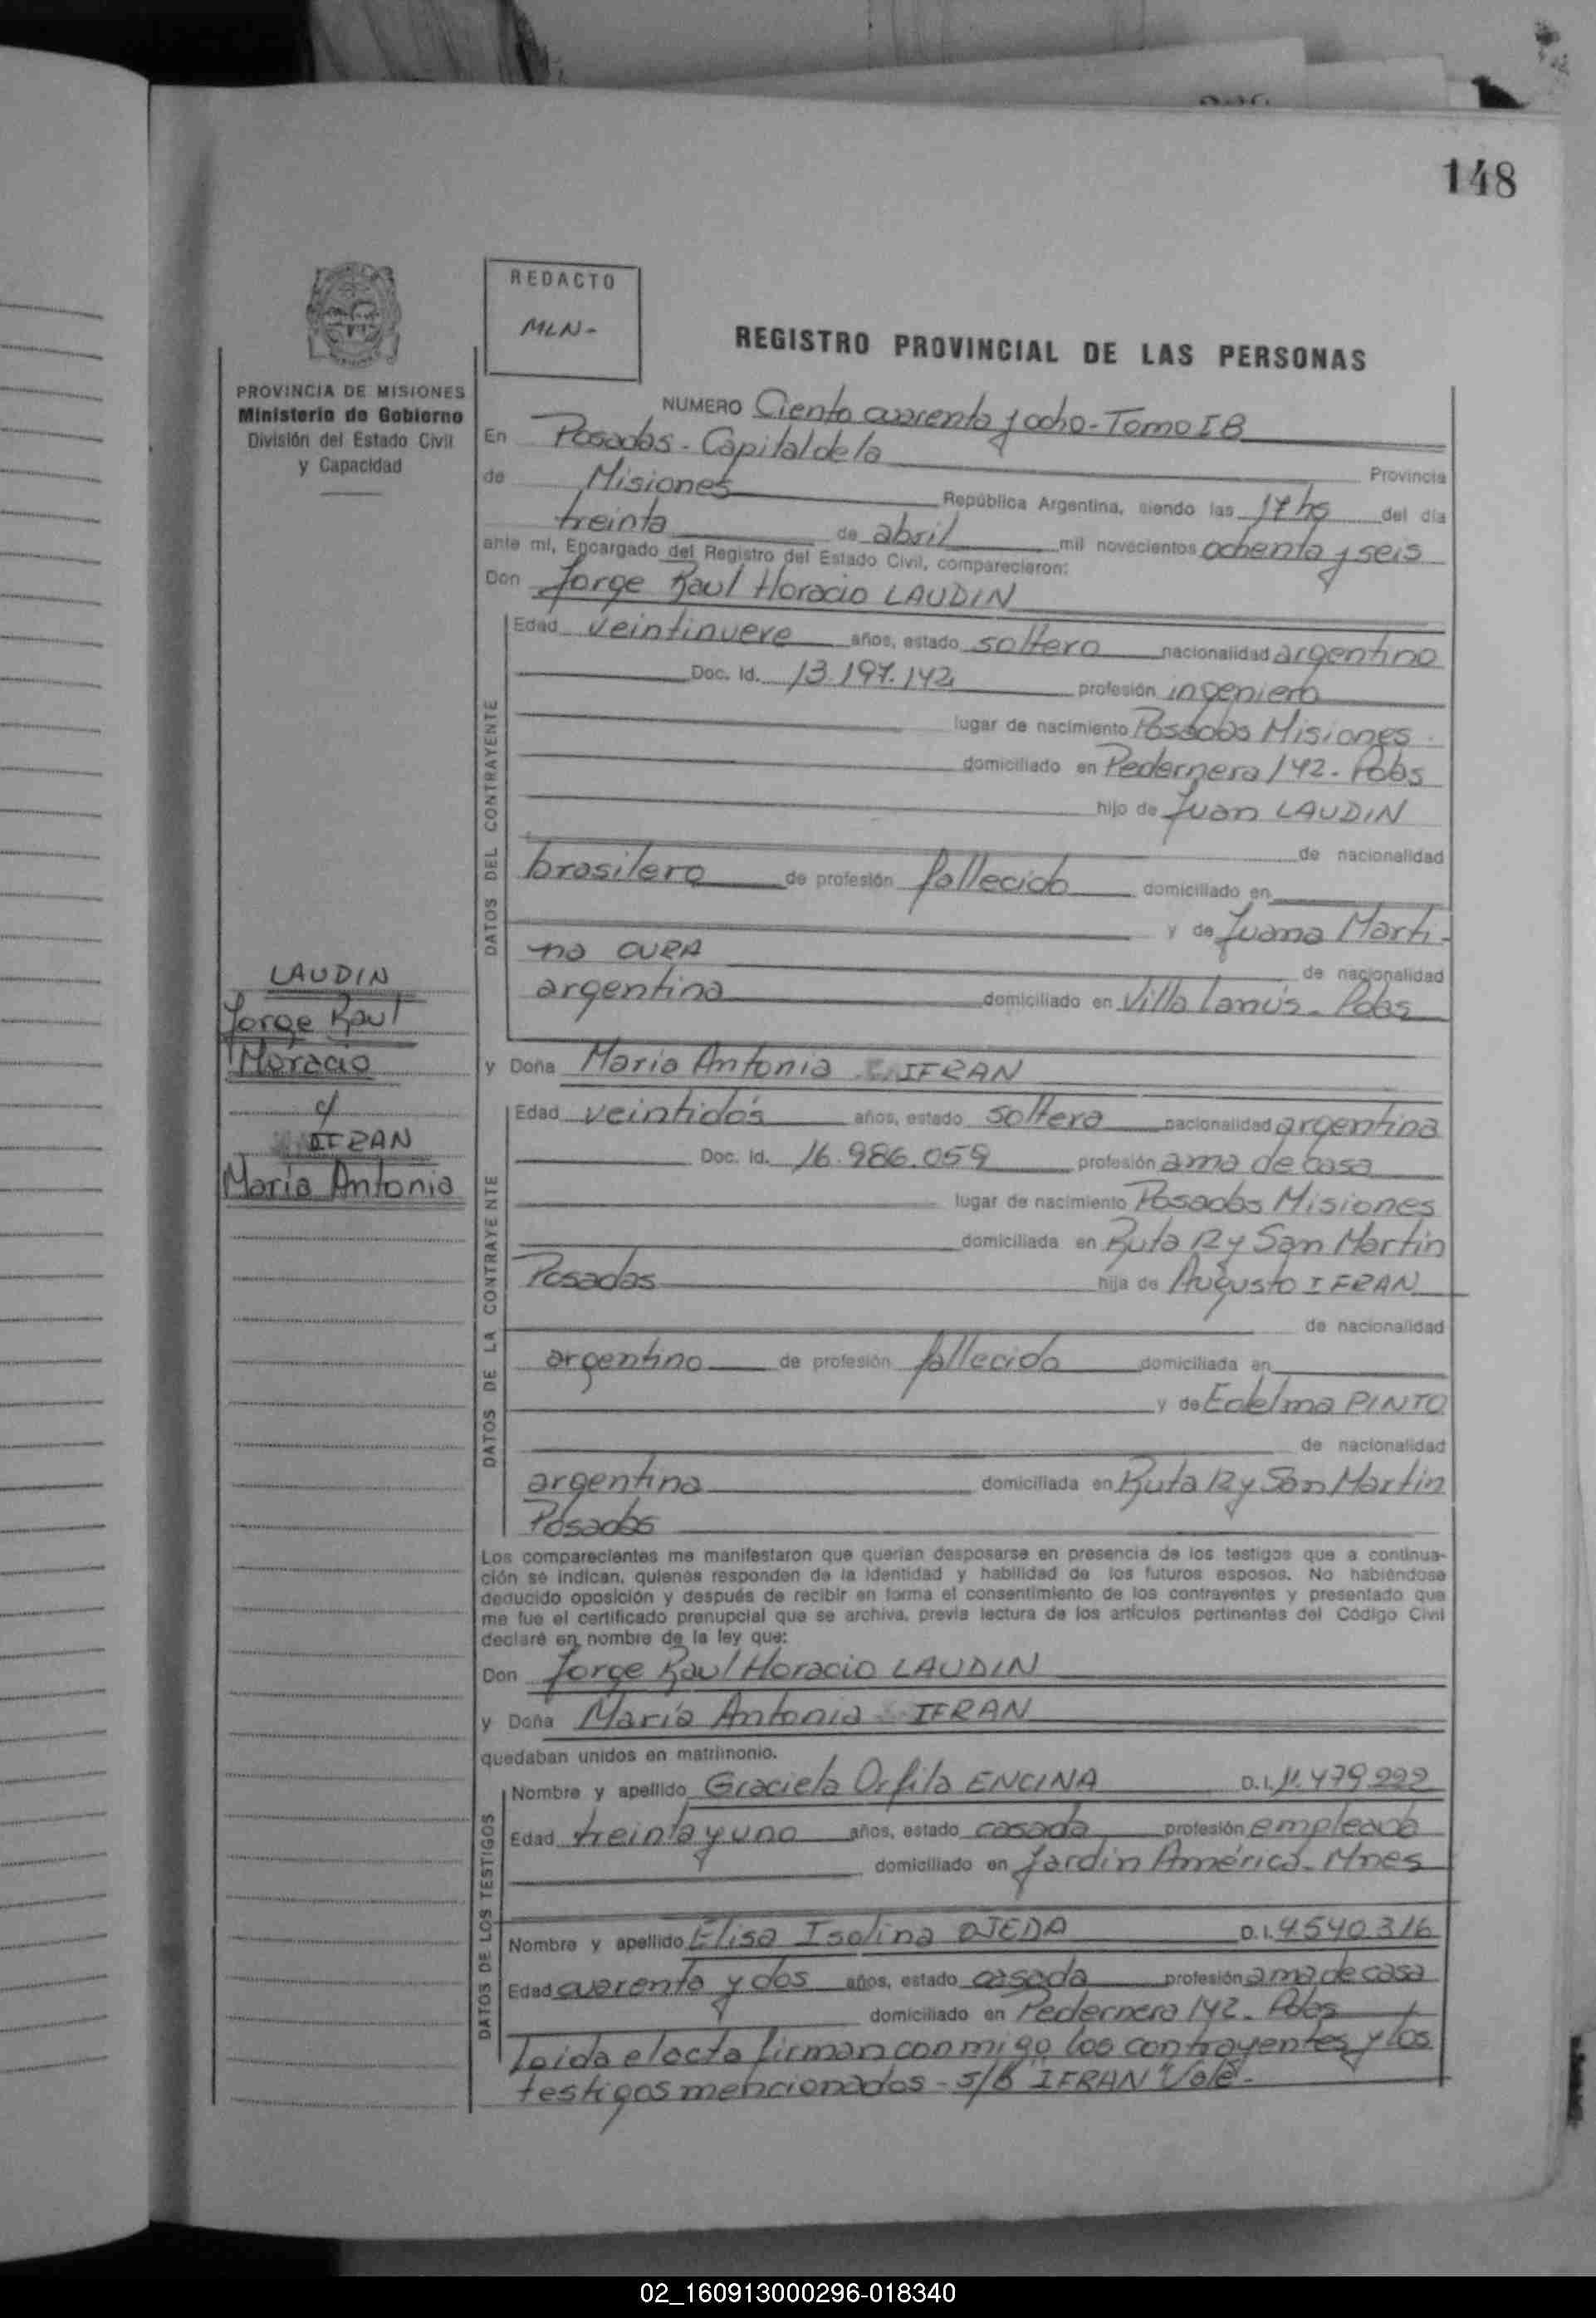 148
REDACTO
MLN-
REGISTRO PROVINCIAL DE LAS PERSONAS
PROVINCIA DE MISIONES
Ministerio de Gobierno
División del Estado Civil
y Capacidad
NUMERO Ciento cuarenta y ocho - Tomo I B
En Posadas - Capital de la Provincia
de Misiones República Argentina, siendo las 17 hs del día
treinta de abril mil novecientos ochenta y seis
ante mi, Encargado del Registro del Estado Civil, comparecieron:
Don Jorge Raul Horacio LAUDIN
DATOS DEL CONTRAYENTE
Edad veintinueve años, estado soltero nacionalidad argentino
Doc. Id. 13.197.142 profesión ingeniero
lugar de nacimiento Posadas Misiones
domiciliado en Pedernera 142 - Pdas
hijo de Juan LAUDIN
de nacionalidad
brasilero de profesión fallecido domiciliado en
y de Juana Marti-
na CURA de nacionalidad
argentina domiciliado en Villa Lanús - Pdas
LAUDIN
Jorge Raul
Horacio
c/
IFRAN
María Antonia
y Doña Maria Antonia IFRAN
DATOS DE LA CONTRAYENTE
Edad veintidós años, estado soltera nacionalidad argentina
Doc. Id. 16.986.059 profesión ama de casa
lugar de nacimiento Posadas Misiones
domiciliada en Ruta 12 y San Martin
Posadas hija de Augusto IFRAN
de nacionalidad
argentino de profesión fallecido domiciliada en
y de Edelma PINTO
de nacionalidad
argentina domiciliada en Ruta 12 y San Martin
Posadas
Los comparecientes me manifestaron que querían desposarse en presencia de los testigos que a continua-
ción se indican, quienes responden de la identidad y habilidad de los futuros esposos. No habiéndose
deducido oposición y después de recibir en forma el consentimiento de los contrayentes y presentado que
me fue el certificado prenupcial que se archiva, previa lectura de los artículos pertinentes del Código Civil
declaré en nombre de la ley que:
Don Jorge Raul Horacio LAUDIN
y Doña María Antonia IFRAN
quedaban unidos en matrimonio.
DATOS DE LOS TESTIGOS
Nombre y apellido Graciela Orfila ENCINA D.I. 11.479.222
Edad treinta y uno años, estado casada profesión empleada
domiciliado en Jardín América - Mnes
Nombre y apellido Elisa Isolina OJEDA D.I. 4.540.316
Edad cuarenta y dos años, estado casada profesión ama de casa
domiciliado en Pedernera 142 - Pdas
Leida el acta firman conmigo los contrayentes y los
testigos mencionados - S/B "IFRAN" Vale -
02_160913000296-018340